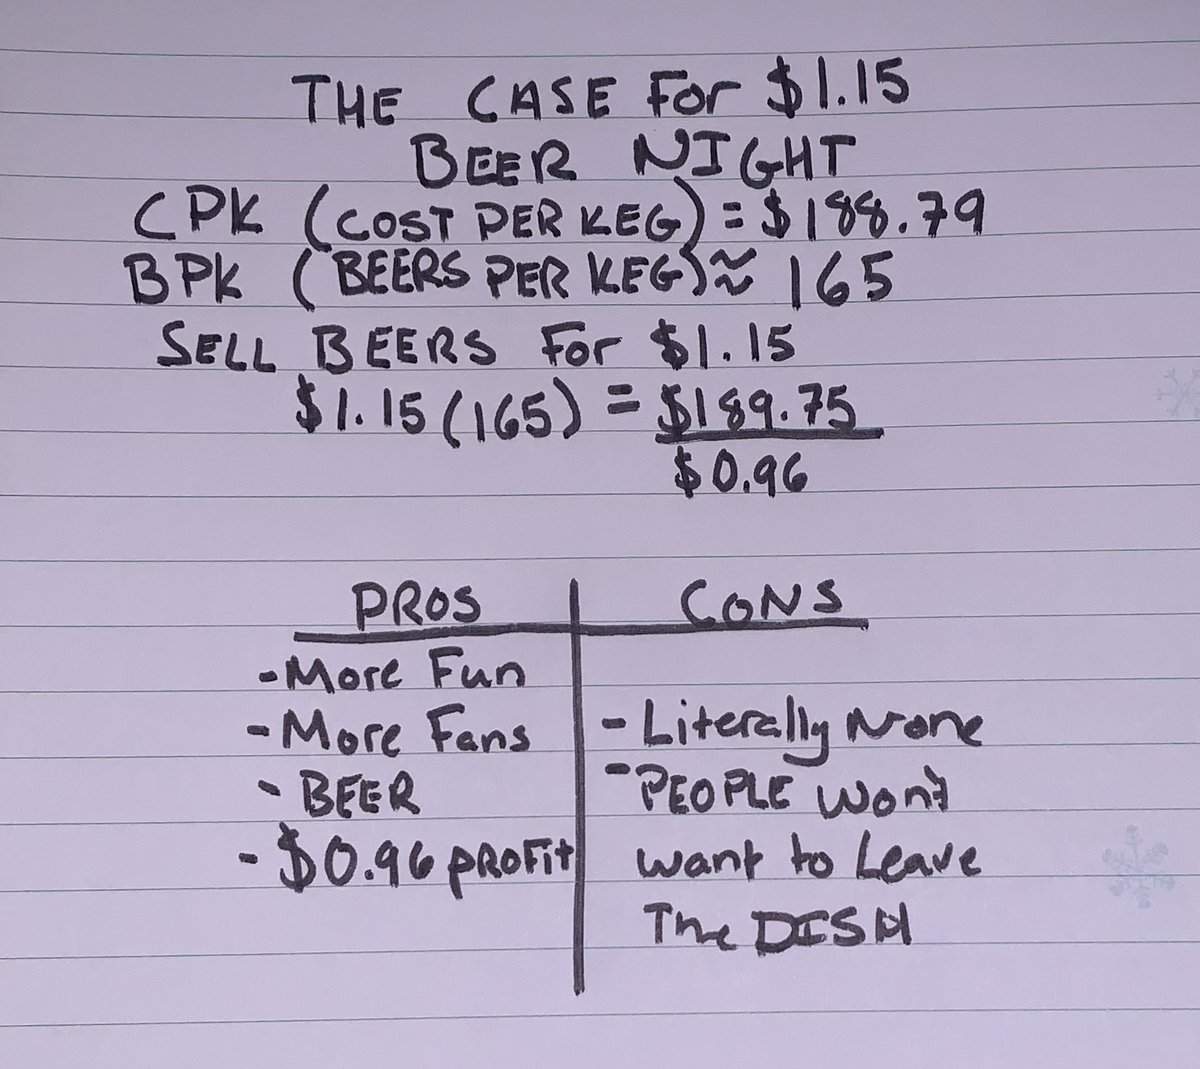 THE CASE For $1.15
BEER NIGHT
CPK (COST PER KEG) = $188.79
BPK (BEERS PER KEG) ≈ 165
SELL BEERS For $1.15
$1.15 (165) = $189.75
$0.96
PROS
- More Fun
- More Fans
- BEER
- $0.96 PROFit
CONS
- Literally None
- PEOPLE Won't
want to Leave
The DISH